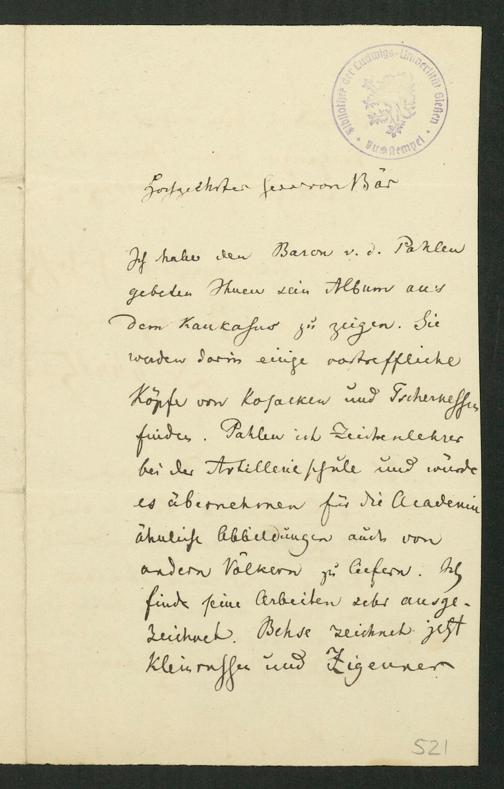 Bibliothek der Ludwigs-Universität Gießen
Hochgeehrter Herr von Bär
Ich habe den Baron v. d. Pahlen
gebeten Ihnen sein Album aus
dem Kaukasus zu zeigen. Sie
werden darin einige vortreffliche
Köpfe von Kosacken und Tscherkessen
finden. Pahlen ist Zeichenlehrer
bei der Artillerieschule und würde
es übernehmen für die Academie
ähnliche Abbildungen auch von
andern Völkern zu liefern. Ich
finde seine Arbeiten sehr ausge-
zeichnet. Behse zeichnet jetzt
Kleinrussen und Zigeuner
521